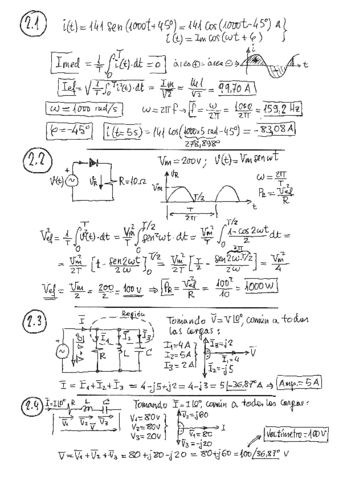 2.1 i(t) = 141 sen(1000t+45º) = 141 cos(1000t-45º) A
i(t) = Im cos(ωt + φ)
Imed = 1/T ∫₀ᵀ i(t)·dt = 0
Ief = √(1/T ∫₀ᵀ i²(t)·dt) = Im/√2 = 141/√2 = 99,70 A
ω = 1000 rad/s ω = 2πf → f = ω/2π = 1000/2π = 159,2 Hz
φ = -45º i(t=5s) = 141 cos(1000x5 rad -45º) = -83,08 A
2.2 Vm = 200V; V(t) = Vm sen ωt
V(t) VR R=10Ω Vm VR T/2 T 2π t
ω = 2π/T
PR = V²ef/R
V²ef = 1/T ∫₀ᵀ V²(t)·dt = V²m/T ∫₀^T/2 sen²ωt·dt = V²m/T ∫₀^T/2 (1-cos2ωt)/2 dt =
= V²m/2T [t - sen2ωt/2ω]₀^T/2 = V²m/2T [T/2 - sen2ω·T/2/2ω] = V²m/4
Vef = Vm/2 = 200/2 = 100 V ⇒ PR = V²ef/R = 100²/10 = 1000 W
2.3 Región Tomando V̄ = V∟0º, común a todas
las cargas:
I I₁ R I₂ L I₃ C
I₁ = 4A
I₂ = 5A
I₃ = 2A
I₃ = j2
I₁ = 4
I₂ = -j5
V̄
Ī = Ī₁+Ī₂+Ī₃ = 4-j5+j2 = 4-j3 = 5∟-36,87º A → Amp. = 5 A
2.4 Ī = I∟0º R L C Tomando Ī = I∟0º, común a todas las cargas:
V̄₁ V̄₂ V̄₃
V₁ = 80V
V₂ = 80V
V₃ = 20V
V̄₂ = j80
V̄₁ = 80
V̄₃ = -j20
I
Voltímetro = 100 V
V̄ = V̄₁+V̄₂+V̄₃ = 80+j80-j20 = 80+j60 = 100∟36,87º V